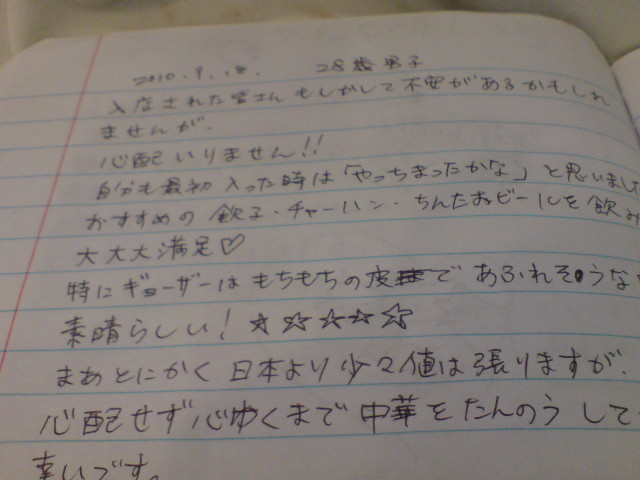 2010.9.18. 28歳 男子
入店された皆さんもしかして不安があるかもしれ
ませんが、
心配いりません!!
自分も最初入った時は「やっちまったかな」と思いまし
おすすめの餃子・チャーハン・ちんたおビールを飲み
大大大満足♡
特にギョーザーはもちもちの皮であふれそうな
素晴らしい!☆☆☆☆☆
まあとにかく日本より少々値は張りますが、
心配せず心ゆくまで中華をたんのうして
幸いです。